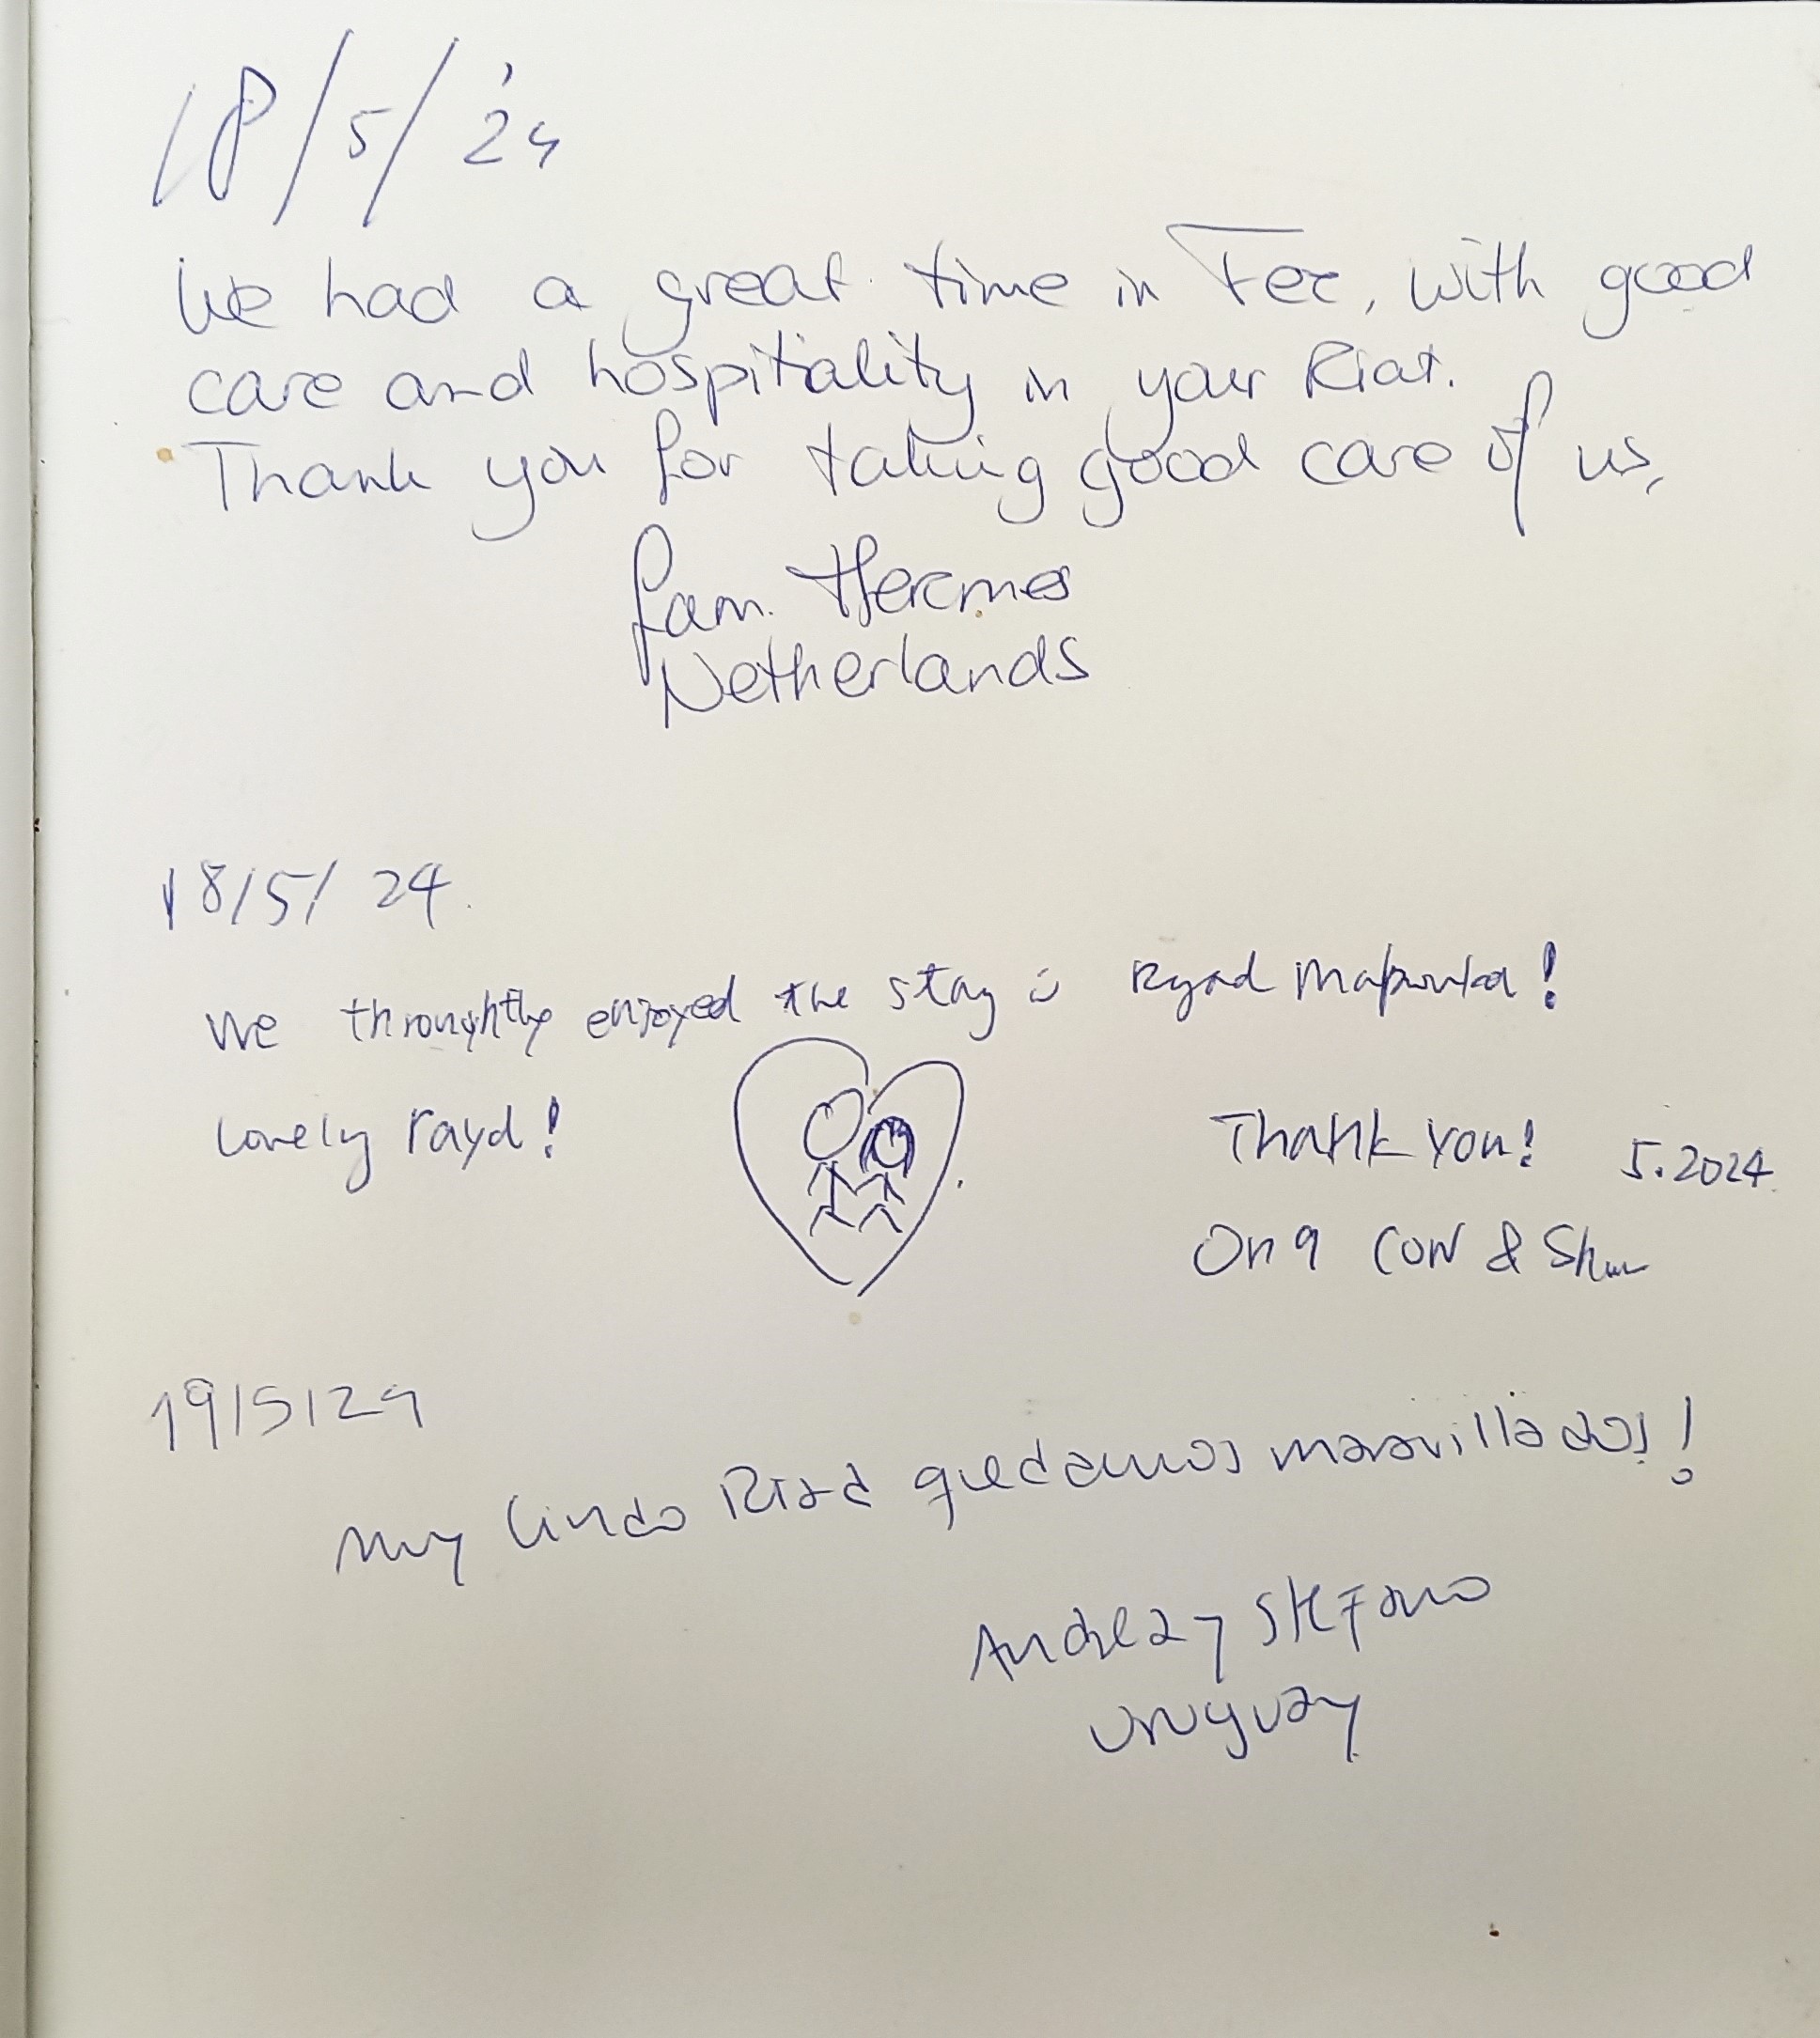 18/5/'24
We had a great time in Fez, with good
care and hospitiality in your Riat.
Thank you for taking good care of us,
fam. Hermes
Netherlands
18/5/24.
We enjoyed the stay Ryad
Lovely rayd!
Thank you! 5.2024
&
19/5/24
Muy lindo Riad quedamos maravillados!
Andrea y Stefano
Uruguay